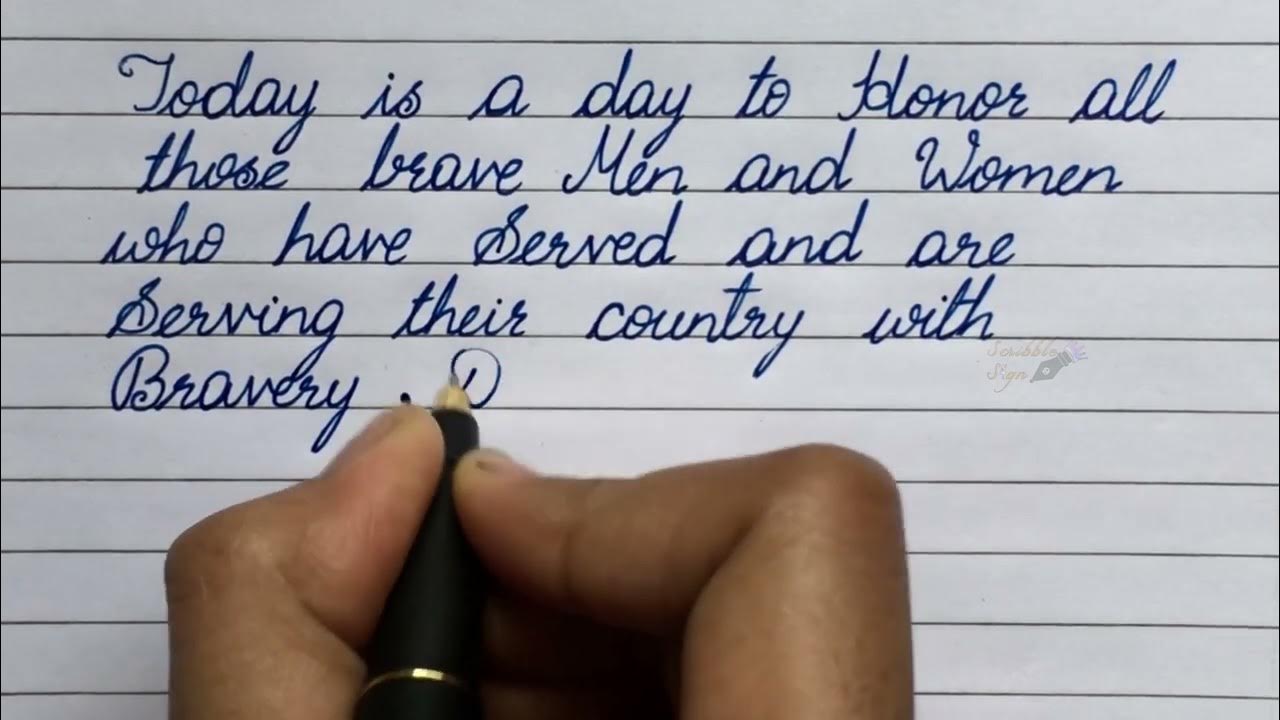 Today is a day to Honor all
those brave Men and Women
who have Served and are
Serving their country with
Bravery .
Scribble
Sign